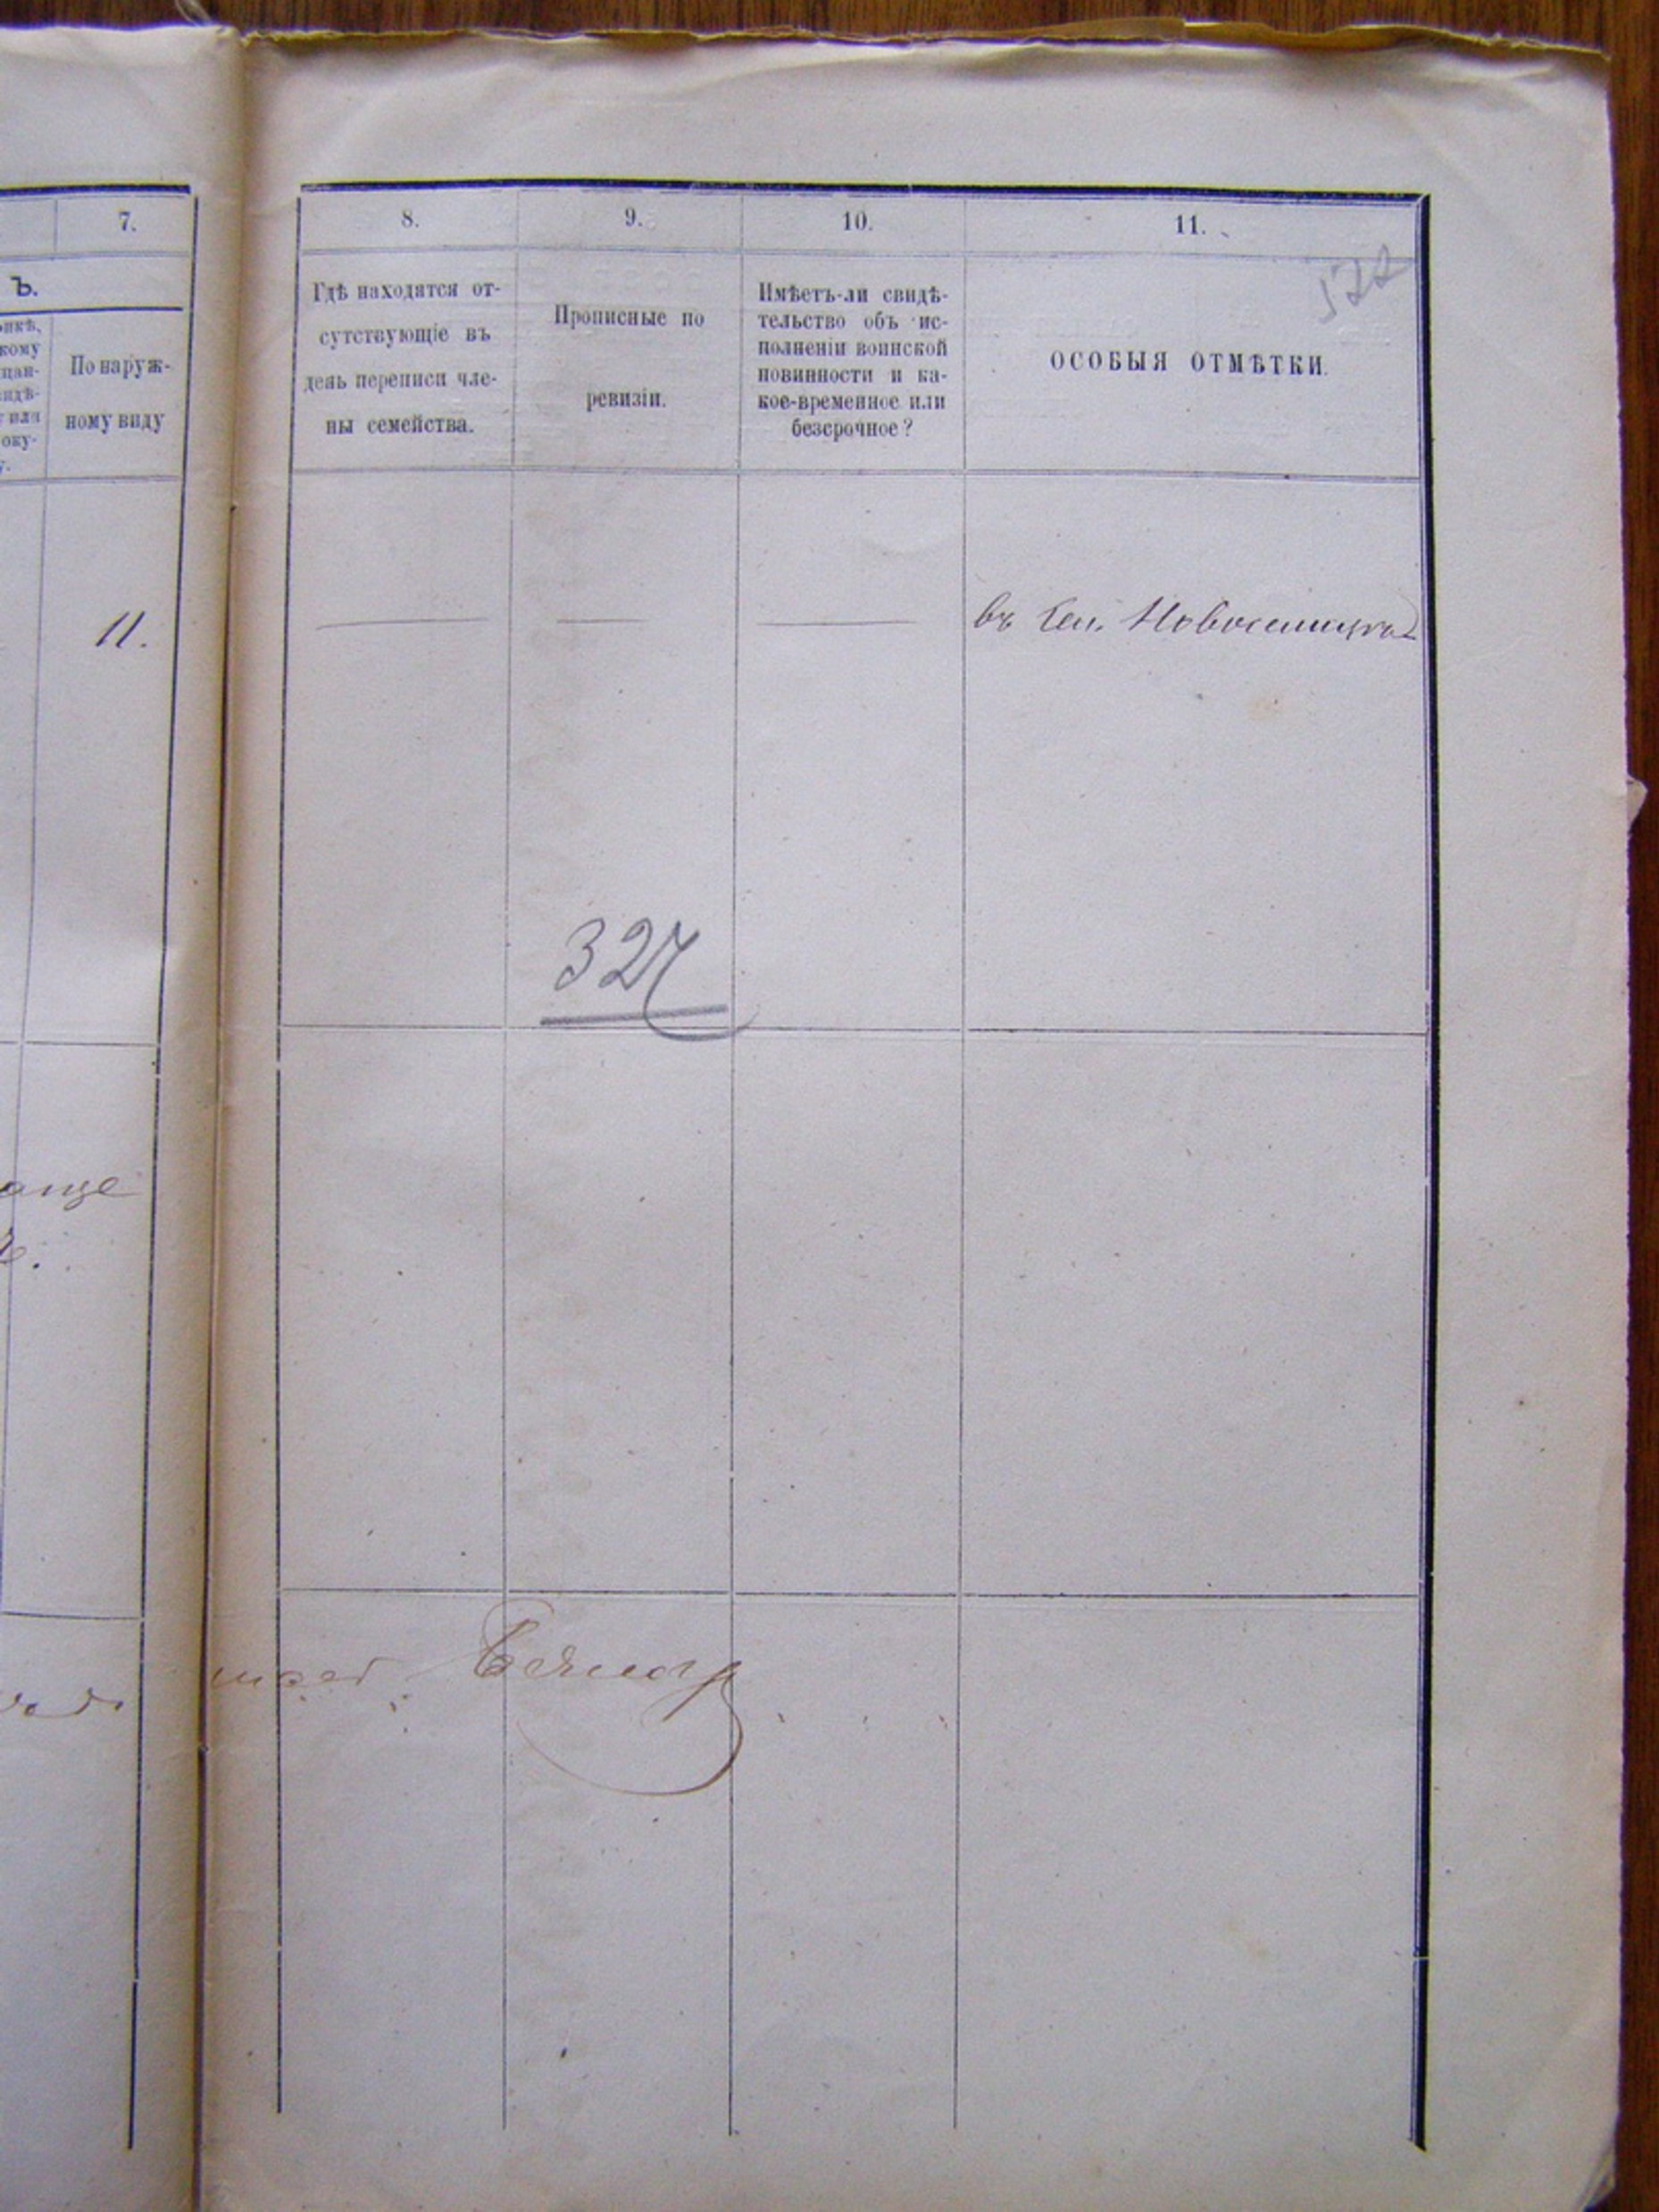 7.
8.
9.
10.
11.
522
Ъ.
По наруж-
ному виду
Гдѣ находятся от-
сутствующіе въ
день переписи чле-
ны семейства.
Прописные по
ревизіи.
Имѣетъ-ли свидѣ-
тельство объ ис-
полненіи воинской
повинности и ка-
кое-временное или
безсрочное?
ОСОБЫЯ ОТМѢТКИ.
11.
въ Сел. Новоселицкал
327